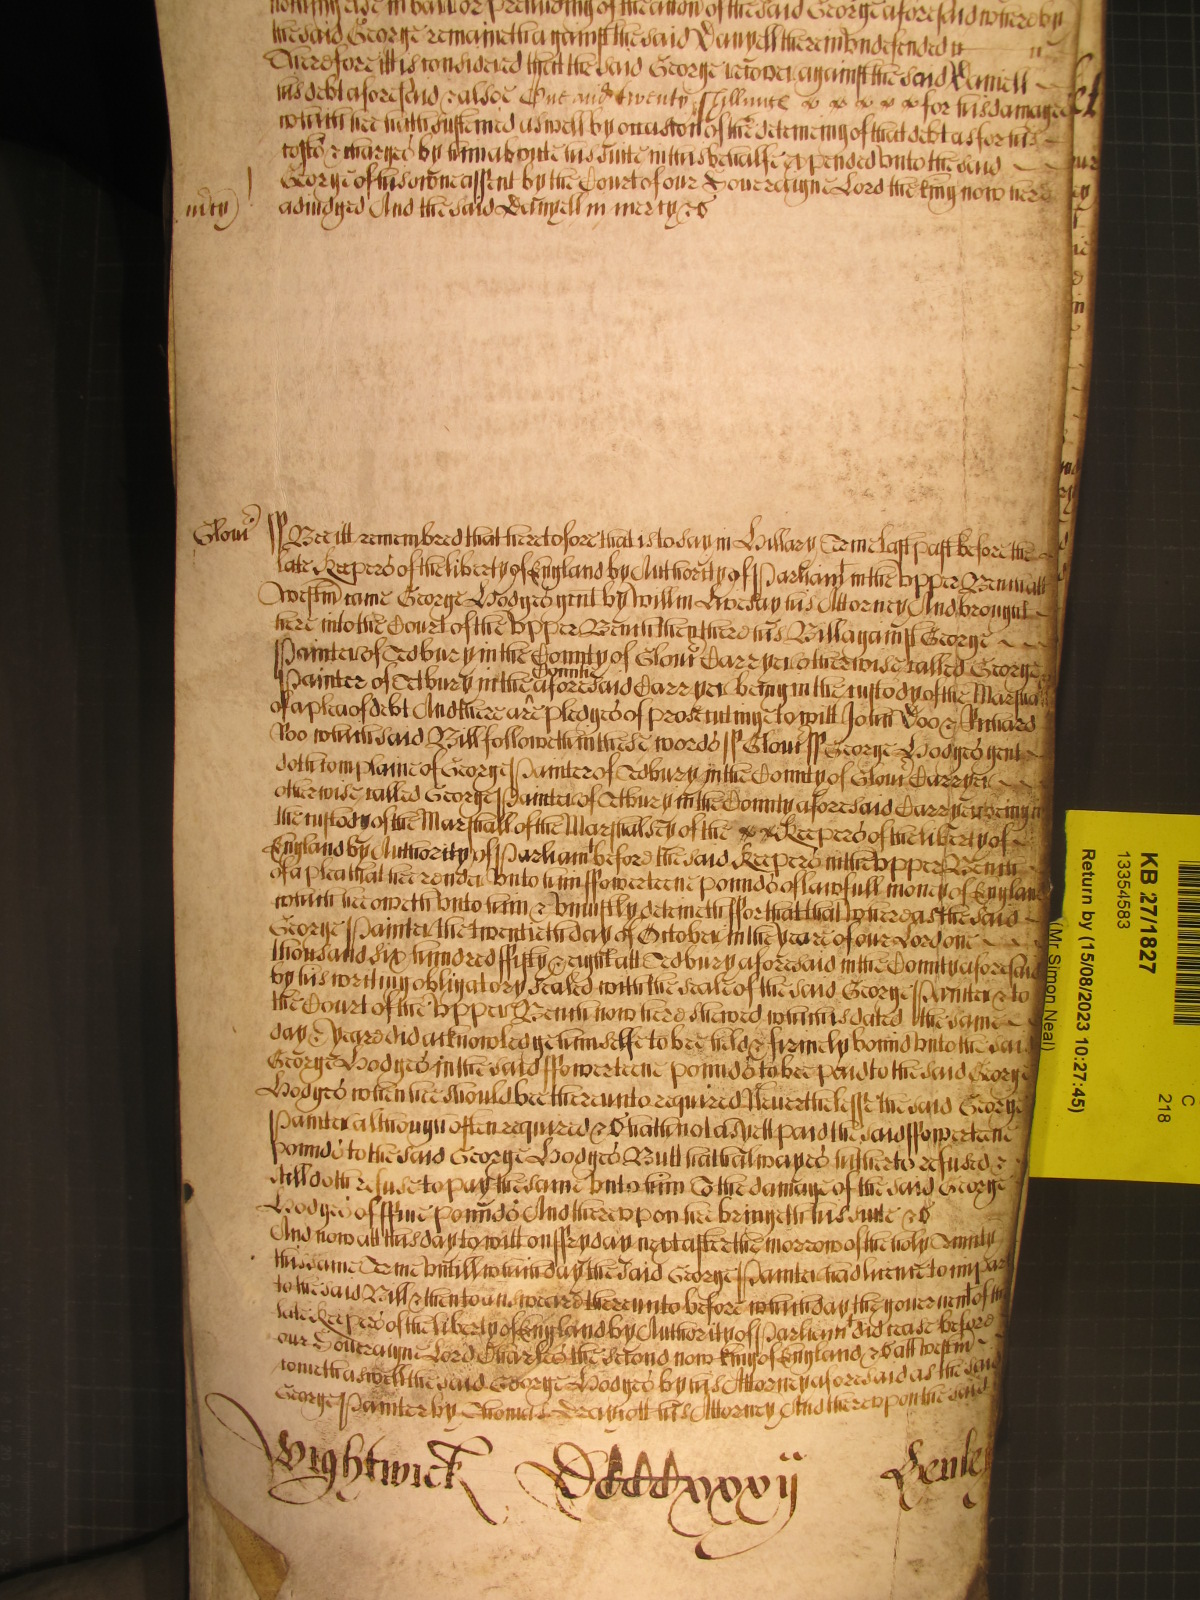 nothing else in barr or precluding of the accion of the said George aforesaid whereby
the said George remaineth against the said Danyell therein undefended
Therefore itt is considered that the said George recover against the said Danyell
his debt aforesaid & alsoe One and twenty shillings for his damages
which hee hath susteined aswell by occasion of the deteineing of that debt as for his
costs & charges by him aboute his suite in this behalfe expended unto the said
George of his owne assent by the Court of our Soveraigne Lord the king now here
adiudged And the said Danyell in mercy &c
mcy
Glouc
ss Bee itt remembred that heretofore that is to say in Hillary Terme last past before the
late Keepers of the liberty of England by Authority of Parliamt in the upper Bench att
Westm came George Hodges gent by Willm Livesay his Attorney And brought
here into the Court of the upper Bench then there his Bill against George
Painter of Tedbury in the County of Glouc Carryer otherwise called George
Painter of Tetbury in the County aforesaid Carryer being in the custody of the Marshall
of a plea of debt And there are pledges of prosecutinge to witt John Doo & Richard
Roo which said Bill followeth in these words ss Glouc ss George Hodges gent
doth complaine of George Painter of Tedbury in the County of Glouc Carryer
otherwise called George Painter of Tetbury in the County aforesaid Carryer being in
the custody of the Marshall of the Marshalsey of the Keepers of the liberty of
England by Authority of Parliamt before the said Keepers in the upper Bench
of a plea that hee render unto him ffowerteene pounds of lawfull money of England
which hee oweth unto him & uniustly deteineth ffor that that whereas the said
George Painter the twentieth day of October in the yeare of our Lord one
thousand six hundred ffifty & eight att Tedbury aforesaid in the County aforesaid
by his writing obligatory sealed with the seale of the said George Painter & to
the Court of the upper Bench now here shewed which is dated the same
day & yeare did acknowledge himselfe to bee held & firmely bound unto the said
George Hodges in the said ffowerteene pounds to bee paid to the said George
Hodges when hee should bee thereunto required Neverthelesse the said George
Painter although often required &c hath not as yett paid the said ffowerteene
pounds to the said George Hodges Butt hath alwayes hitherto refused &
still doth refuse to pay the same unto him To the damage of the said George
Hodges of ffive pounds And thereupon hee bringeth his suite &c
And now att this day to witt on ffryday next after the morrow of the holy Trinity
this same Terme untill which day the said George Painter had licence to imparl
to the said Bill & then to answeare thereunto before which day the governemt of the
late Keepers of the liberty of England by Authority of Parliamt did cease before
our Soveraigne Lord Charles the second now king of England &c att Westm
cometh aswell the said George Hodges by his Attorney aforesaid as the said
George Painter by Thomas his Attorney And thereupon the said
Wightwick Dccccxxxvij Henley
KB 27/1827
13354583
Return by (15/08/2023 10:27:45)
(Mr Simon Neal)
C
218